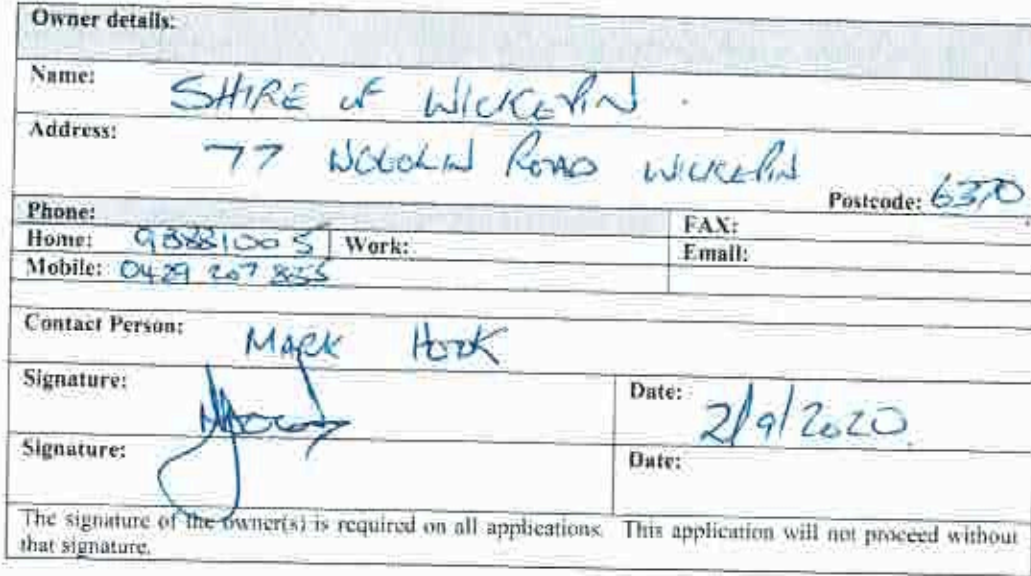 Owner details:
Name: SHIRE OF WICKEPIN.
Address: 77 WOGOLIN ROAD WICKEPIN
Postcode: 6370
Phone: FAX:
Home: 98881005 Work: Email:
Mobile: 0429 207 835
Contact Person: MARK HOOK
Signature: Date: 2/9/2020
Signature: Date:
The signature of the owner(s) is required on all applications. This application will not proceed without
that signature.